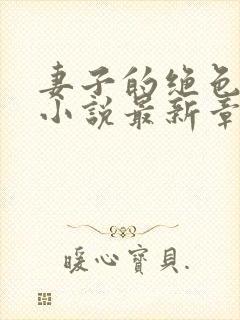 妻子的绝色
小说最新章
暖心寶貝.